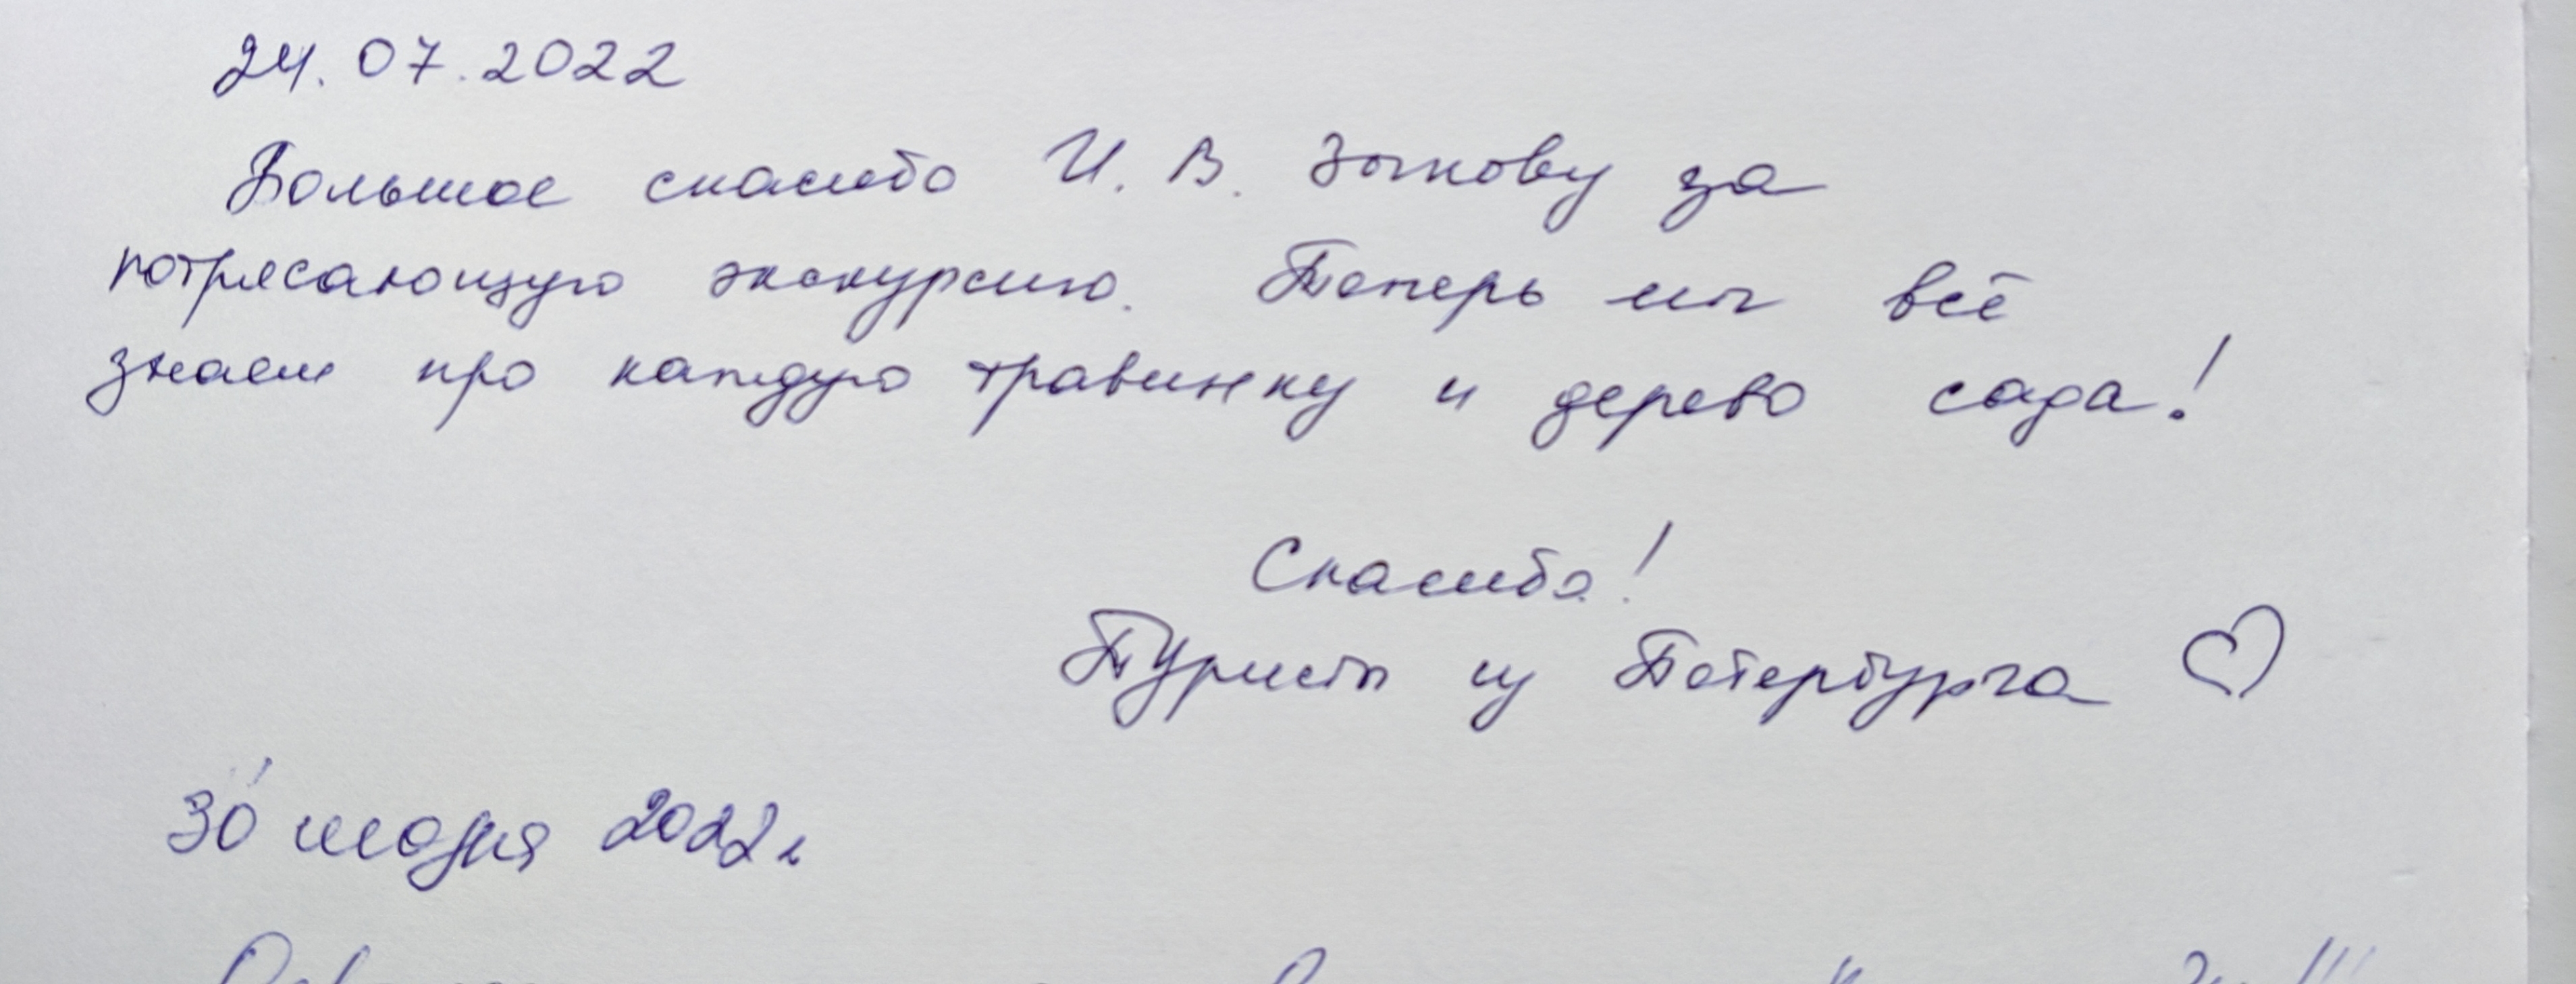 24.07.2022
Большое спасибо И. В. Зыкову за
потрясающую экскурсию. Теперь мы всё
знаем про каждую травинку и дерево сада!
Спасибо!
Туристы из Петербурга ♡
30 июля 2022г